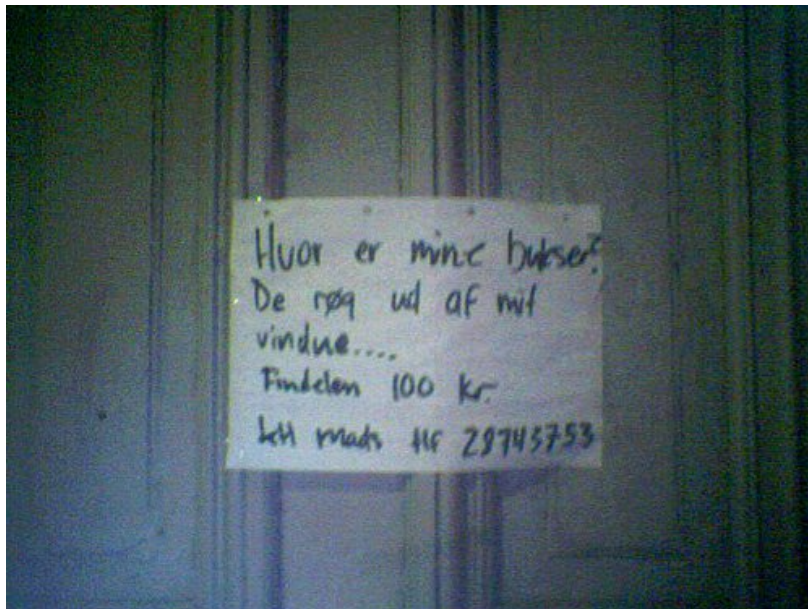 Hvor er mine bukser?
De røg ud af mit
vindue....
Findeløn 100 kr.
Mads tlf 28743753